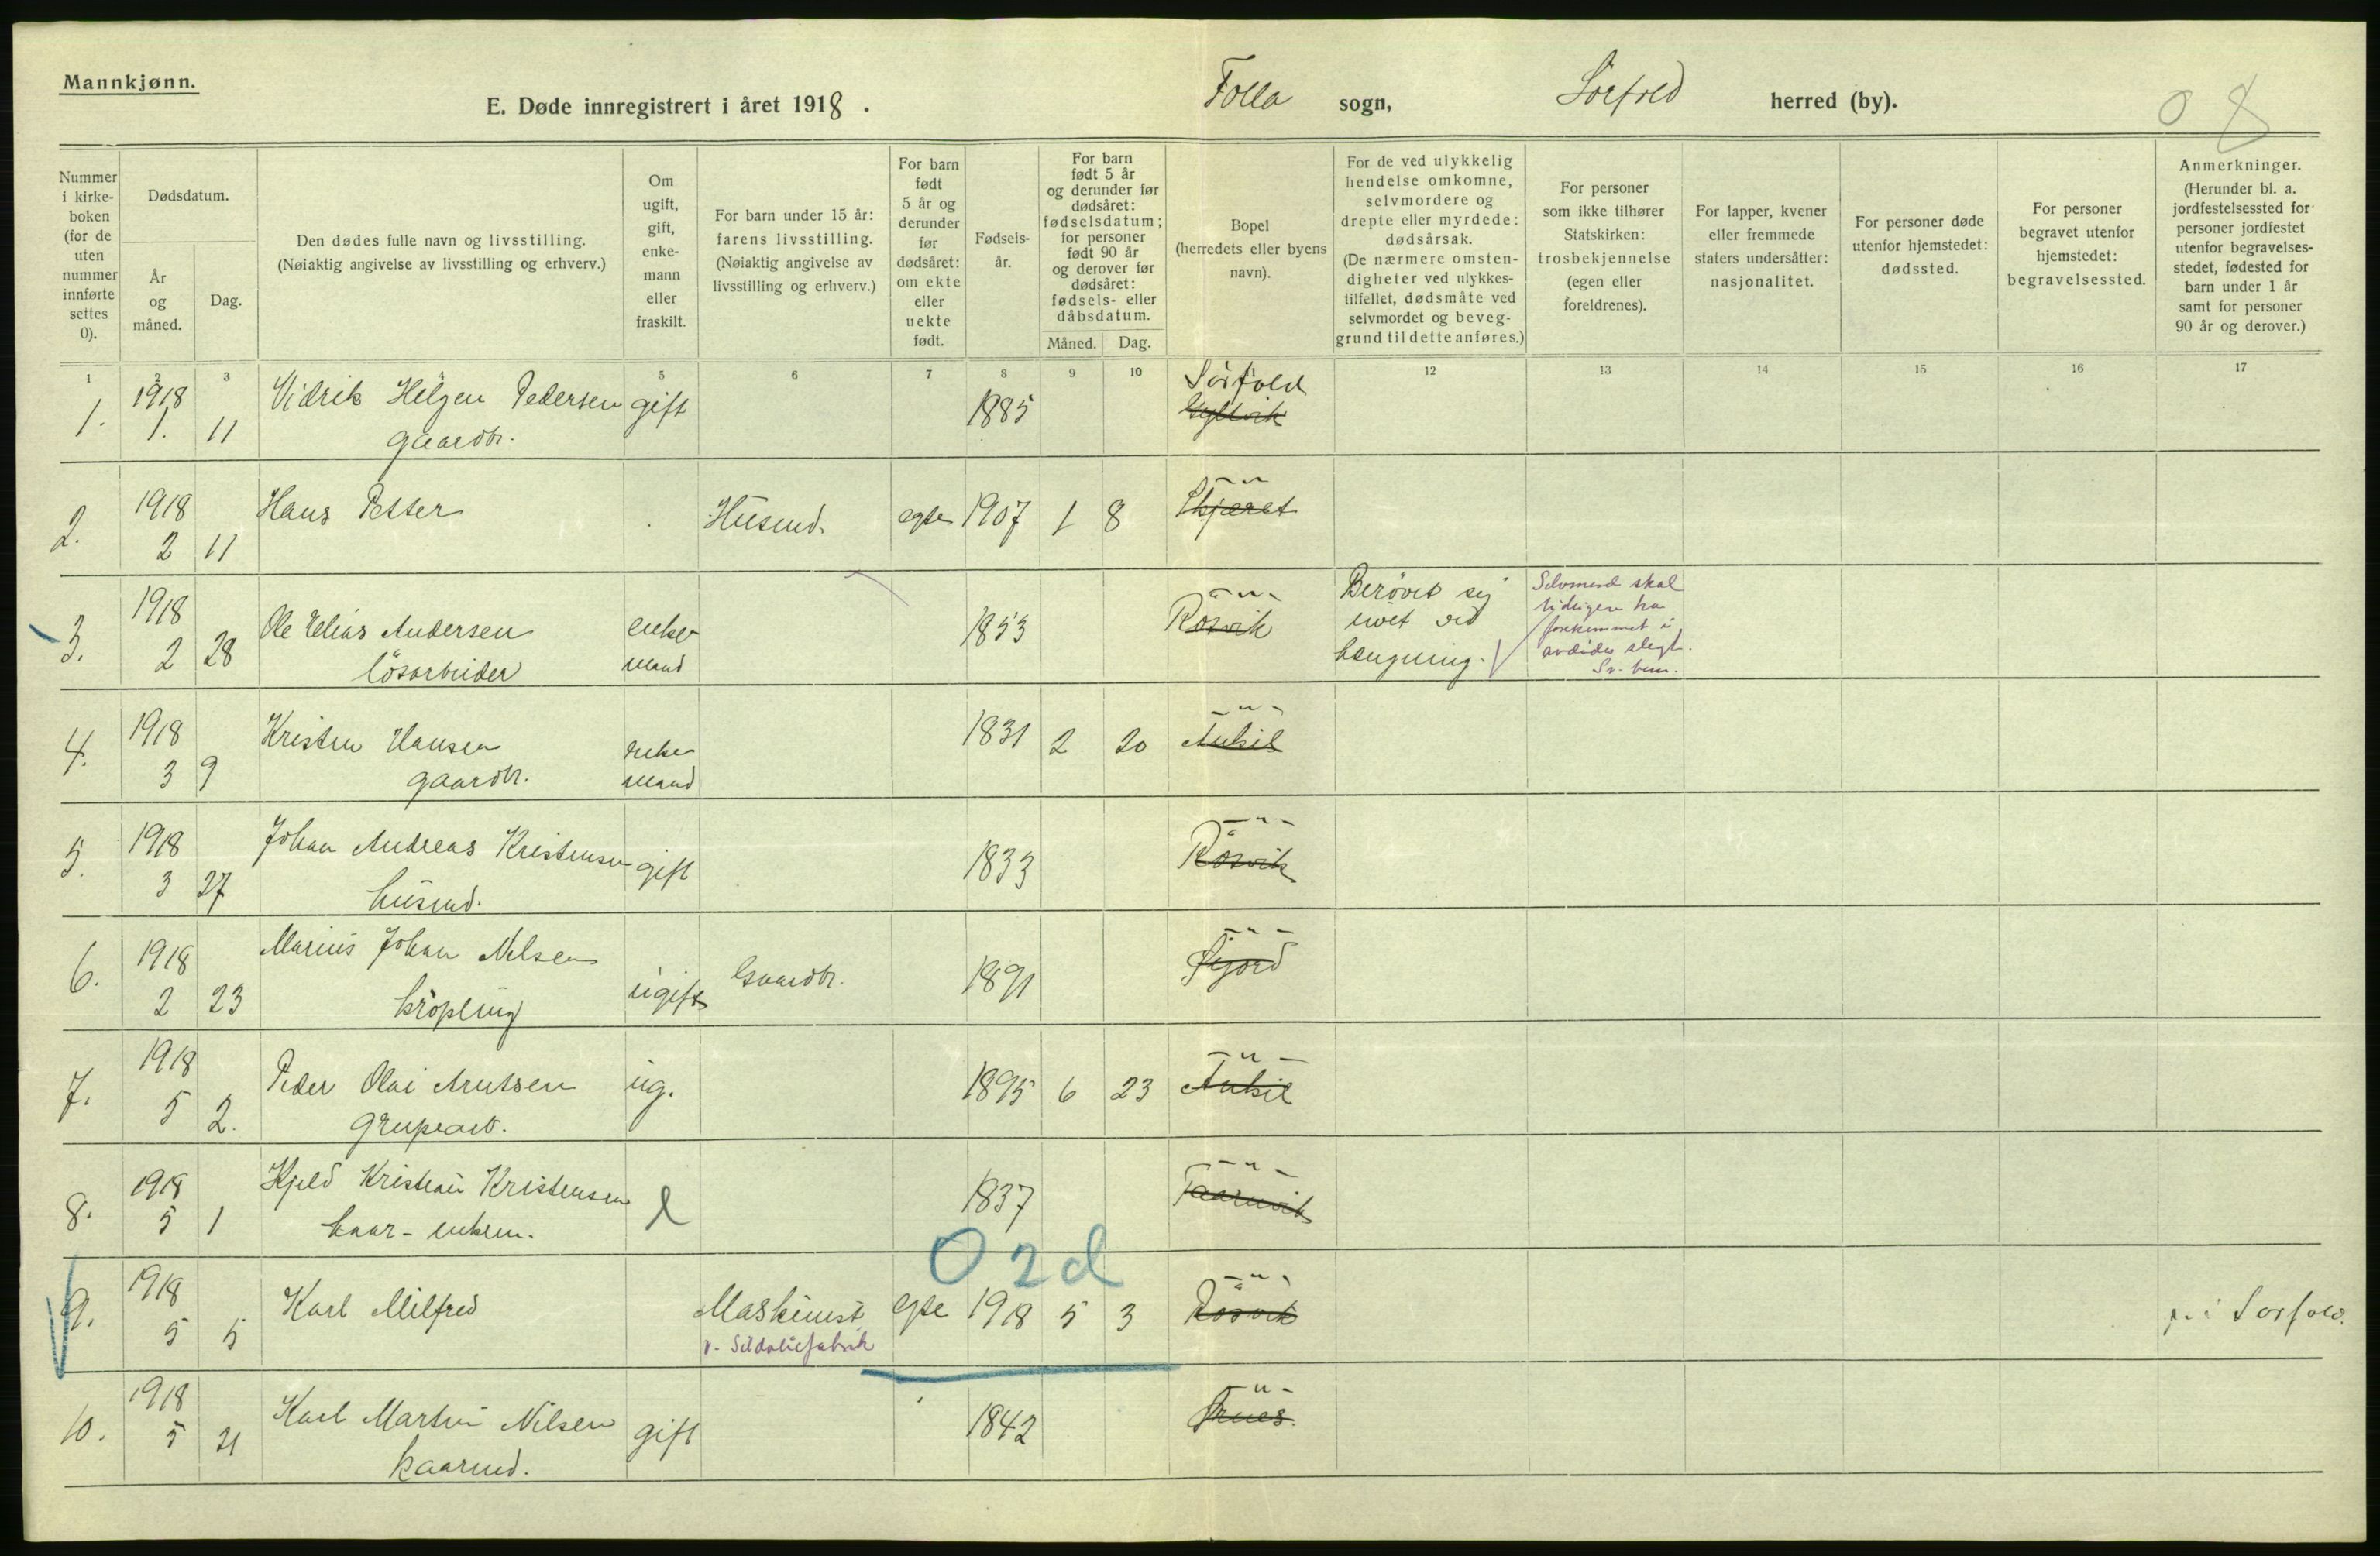 Mannkjønn.
E. Døde innregistrert i året 1918.
Folla sogn,
Sörfold herred (by).
0 8
Nummer
i kirke-
boken
(for de
uten
nummer
innførte
settes
0).
Dødsdatum.
År
og
måned.
Dag.
Den dødes fulle navn og livsstilling.
(Nøiaktig angivelse av livsstilling og erhverv.)
Om
ugift,
gift,
enke-
mann
eller
fraskilt.
For barn under 15 år:
farens livsstilling.
(Nøiaktig angivelse av
livsstilling og erhverv.)
For barn
født
5 år og
derunder
før
dødsåret:
om ekte
eller
uekte
født.
Fødsels-
år.
For barn
født 5 år
og derunder før
dødsåret:
fødselsdatum;
for personer
født 90 år
og derover før
dødsåret:
fødsels- eller
dåbsdatum.
Måned. Dag.
Bopel
(herredets eller byens
navn).
For de ved ulykkelig
hendelse omkomne,
selvmordere og
drepte eller myrdede:
dødsårsak.
(De nærmere omsten-
digheter ved ulykkes-
tilfellet, dødsmåte ved
selvmordet og beveg-
grund til dette anføres.)
For personer
som ikke tilhører
Statskirken:
trosbekjennelse
(egen eller
foreldrenes).
For lapper, kvener
eller fremmede
staters undersåtter:
nasjonalitet.
For personer døde
utenfor hjemstedet:
dødssted.
For personer
begravet utenfor
hjemstedet:
begravelsessted.
Anmerkninger.
(Herunder bl. a.
jordfestelsessted for
personer jordfestet
utenfor begravelses-
stedet, fødested for
barn under 1 år
samt for personer
90 år og derover.)
1 2 3 4 5 6 7 8 9 10 12 13 14 15 16 17
1. 1918 1. 11 Vidrik Helgen Pedersen gift 1885 Sörfold
gaardbr.
2. 1918 2 11 Hans Petter Husmd. egte 1907 1 8 -"- Skjæret
3. 1918 2 28 Ole Elias Andersen enke- 1853 -"- Rösvik
lösarbeider mand
Berövet sig
livet ved
hængning.
Selvmord skal
tidligere ha
forekommet i
avdødes slegt.
4. 1918 3 9 Kristen Hansen enke- 1831 2 20 -"-
gaardbr. mand
5. 1918 3 27 Johan Andreas Kristensen gift 1833 -"- Rösvik
husmd.
6. 1918 2 23 Marius Johan Nilsen ugift Gaardbr. 1891 -"-
kröpling
7. 1918 5 2. Peder Olai Arntsen ug. 1895 6 23 -"-
grupearb.
8. 1918 5 1 Kjeld Kristian Kristensen 1837 -"- Taarnvik
kaar-enkem.
0 2 d
9. 1918 5 5 Karl Milfred Maskinist egte 1918 5 3 -"- Rösvik Sörfold.
v. Sildoliefabrik
10. 1918 5 21 Karl Martin Nilsen gift 1842 -"-
kaarmd.